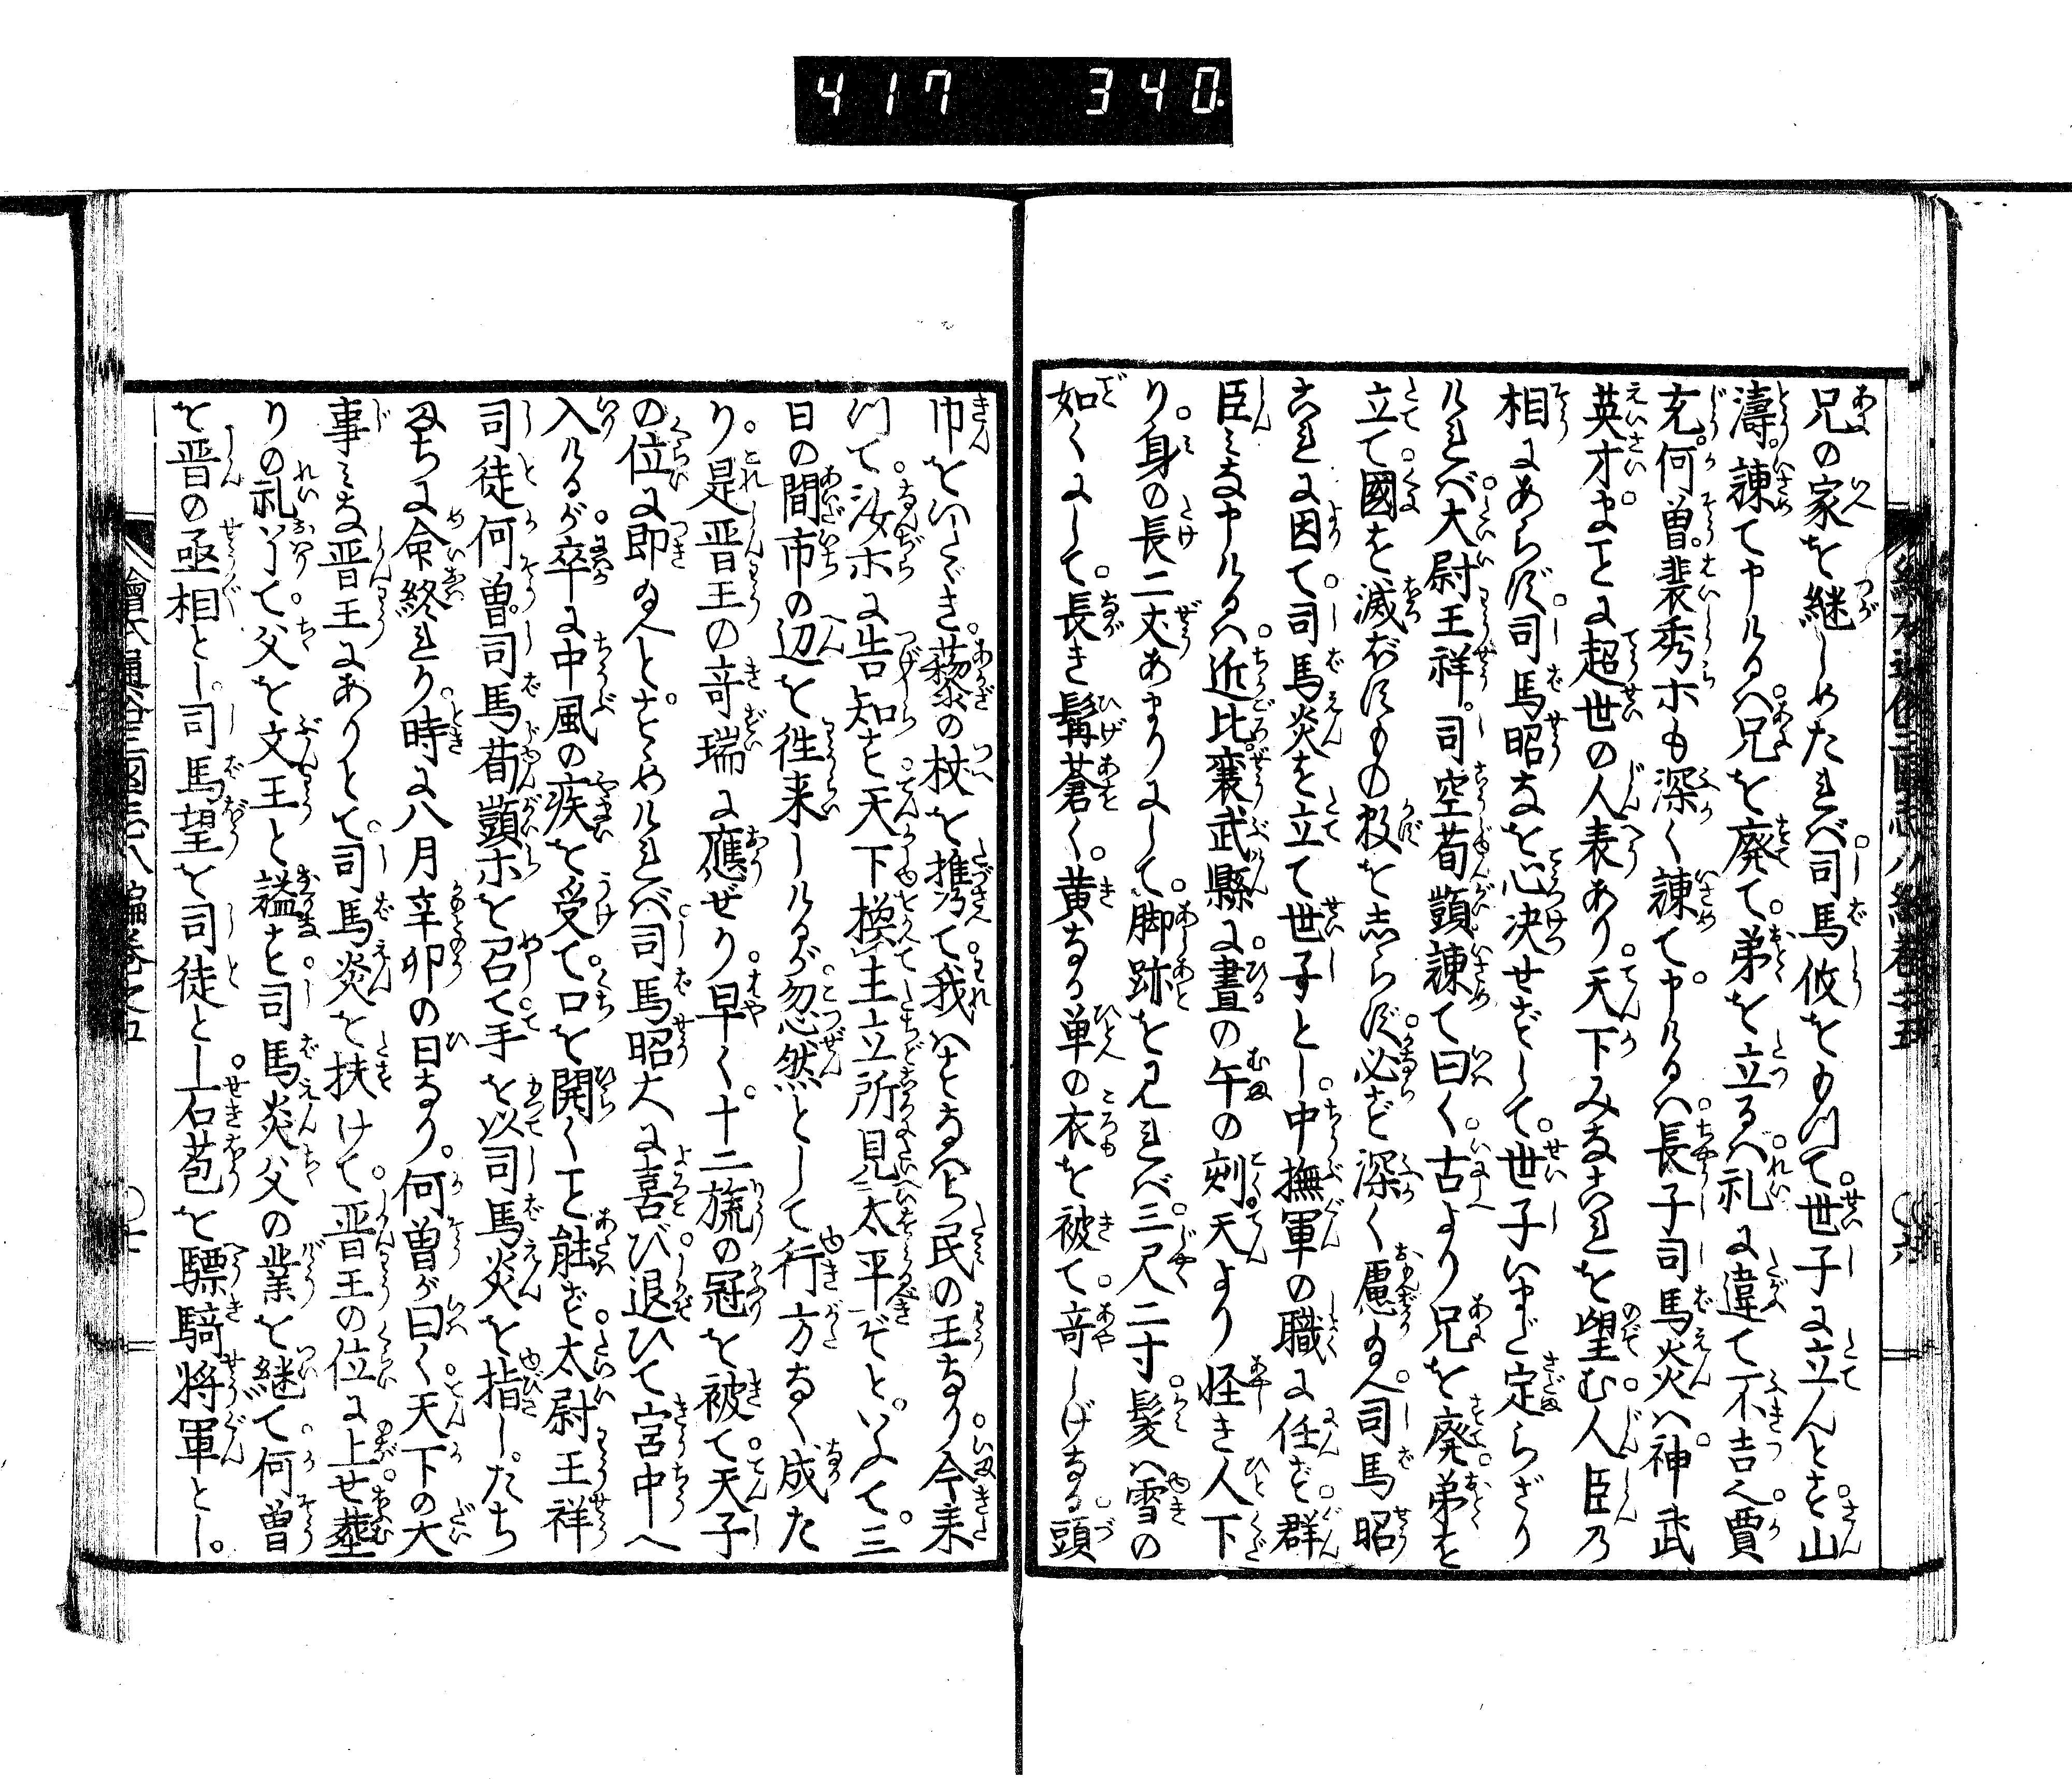 417 340
兄の家を継しめたれバ司馬攸をもつて世子に立んとす山
濤諌て申けるハ兄を廃て弟を立るハ礼に違て不吉也賈
充何曽裴秀ホも深く諌て申けるハ長子司馬炎ハ神武
英才まことに超世の人表あり天下みなこれを望む人臣乃
相にあらず司馬昭なを心決せずして世子いまだ定らざり
けれバ大尉王祥司空荀顗諌て曰く古より兄を廃弟を
立て國を滅ずもの数をしらず必ず深く慮玉へ司馬昭
これに因て司馬炎を立て世子とし中撫軍の職に任ず群
臣ミな申けるハ近比襄武縣に晝の午の刻天より怪き人下
り身の長二丈あまりにして脚跡を見れバ三尺二寸髪ハ雪の
如くにして長き髯蒼く黄なる単の衣を被て奇しげなる頭
巾をいたゞき藜の杖を携て我ハこれすなハち民の王なり今来
つて汝ホに告知す天下換主立所見太平ぞといふて三
日の間市の辺を徃来しけるが忽然として行方なく成た
り是晋王の奇瑞に應ぜり早く十二旒の冠を被て天子
の位に即玉へとすゝめけれバ司馬昭大に喜び退ひて宮中へ
入けるが卒に中風の疾を受て口を開くこと能ず太尉王祥
司徒何曽司馬荀顗ホを召て手を以司馬炎を指したち
まちに命終れり時に八月辛卯の日なり何曽が曰く天下の大
事ミな晋王にありとて司馬炎を扶けて晋王の位に上せ葬
りの礼了て父を文王と謚す司馬炎父の業を継て何曽
を晋の亟相とし司馬望を司徒とし石苞を驃騎将軍とし